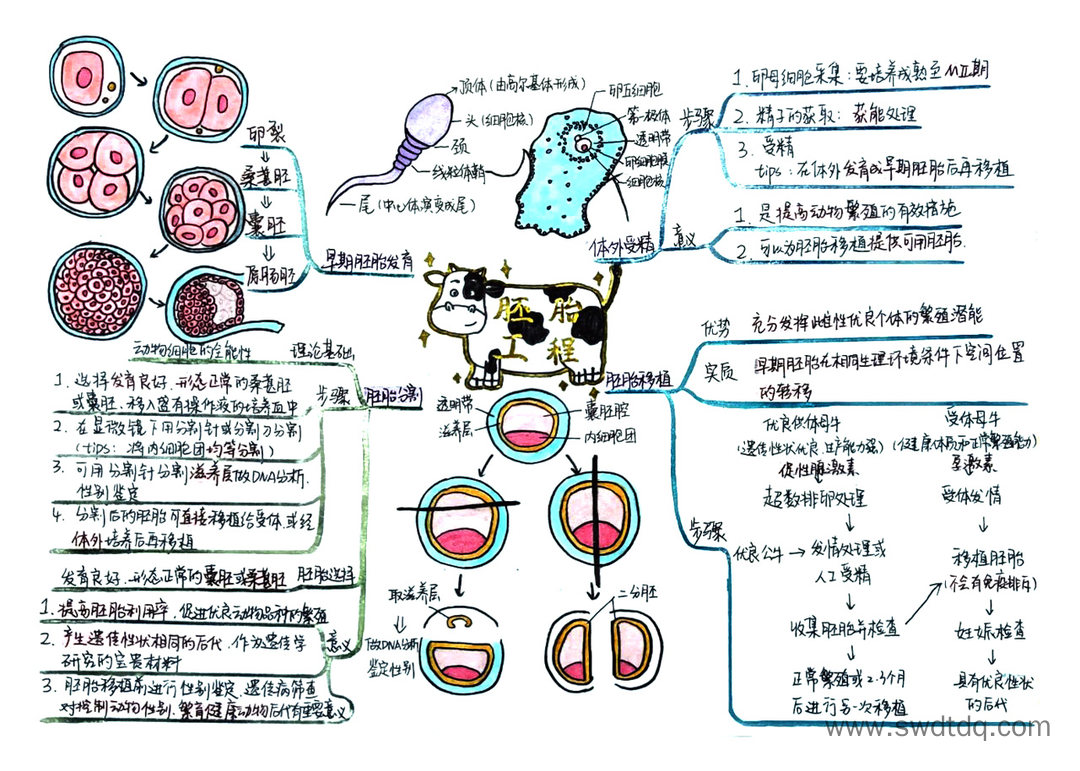 胚胎
工程
早期胚胎发育
卵裂
桑葚胚
囊胚
原肠胚
顶体(由高尔基体形成)
头(细胞核)
颈
线粒体鞘
尾(中心体演变成尾)
第一极体
透明带
卵细胞膜
细胞核
体外受精
步骤
1. 卵母细胞采集:要培养成熟至MⅡ期
2. 精子的获取:获能处理
3. 受精
tips:在体外发育成早期胚胎后再移植
意义
1. 是提高动物繁殖的有效措施
2. 可以为胚胎移植提供可用胚胎.
胚胎分割
理论基础
动物细胞的全能性
步骤
1. 选择发育良好、形态正常的桑葚胚
或囊胚,移入盛有操作液的培养皿中
2. 在显微镜下用分割针或分割刀分割
(tips:将内细胞团均等分割)
3. 可用分割针分割滋养层做DNA分析、
性别鉴定
4. 分割后的胚胎可直接移植给受体,或经
体外培养后再移植
胚胎选择
发育良好、形态正常的囊胚或桑葚胚
意义
1. 提高胚胎利用率,促进优良动物品种的繁殖
2. 产生遗传性状相同的后代,作为遗传学
研究的宝贵材料
3. 胚胎移植前进行性别鉴定、遗传病筛查
对控制动物性别、繁育健康动物后代有重要意义
透明带
滋养层
囊胚腔
内细胞团
取滋养层
做DNA分析
鉴定性别
二分胚
胚胎移植
优势
充分发挥雌性优良个体的繁殖潜能
实质
早期胚胎在相同生理环境条件下空间位置
的转移
步骤
优良供体母牛
(遗传性状优良、生产能力强)
促性腺激素
超数排卵处理
优良公牛
发情处理或
人工受精
收集胚胎并检查
正常繁殖或2-3个月
后进行另一次移植
受体母牛
(健康体质和正常繁殖能力)
受体发情
移植胚胎
(不会有免疫排斥)
妊娠检查
具有优良性状
的后代
www.swdtdq.com